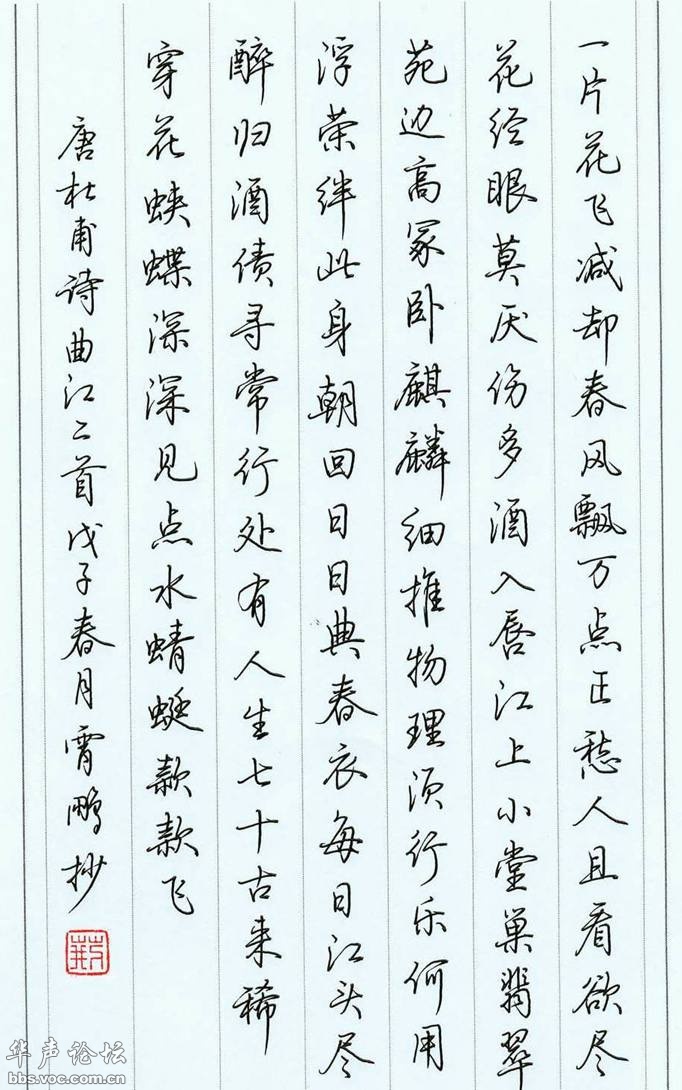 一片花飞减却春风飘万点正愁人且看欲尽
花经眼莫厌伤多酒入唇江上小堂巢翡翠
苑边高冢卧麒麟细推物理须行乐何用
浮荣绊此身朝回日日典春衣每日江头尽
醉归酒债寻常行处有人生七十古来稀
穿花蛱蝶深深见点水蜻蜓款款飞
唐杜甫诗曲江二首戊子春月霄鹏抄
华声论坛
bbs.voc.com.cn